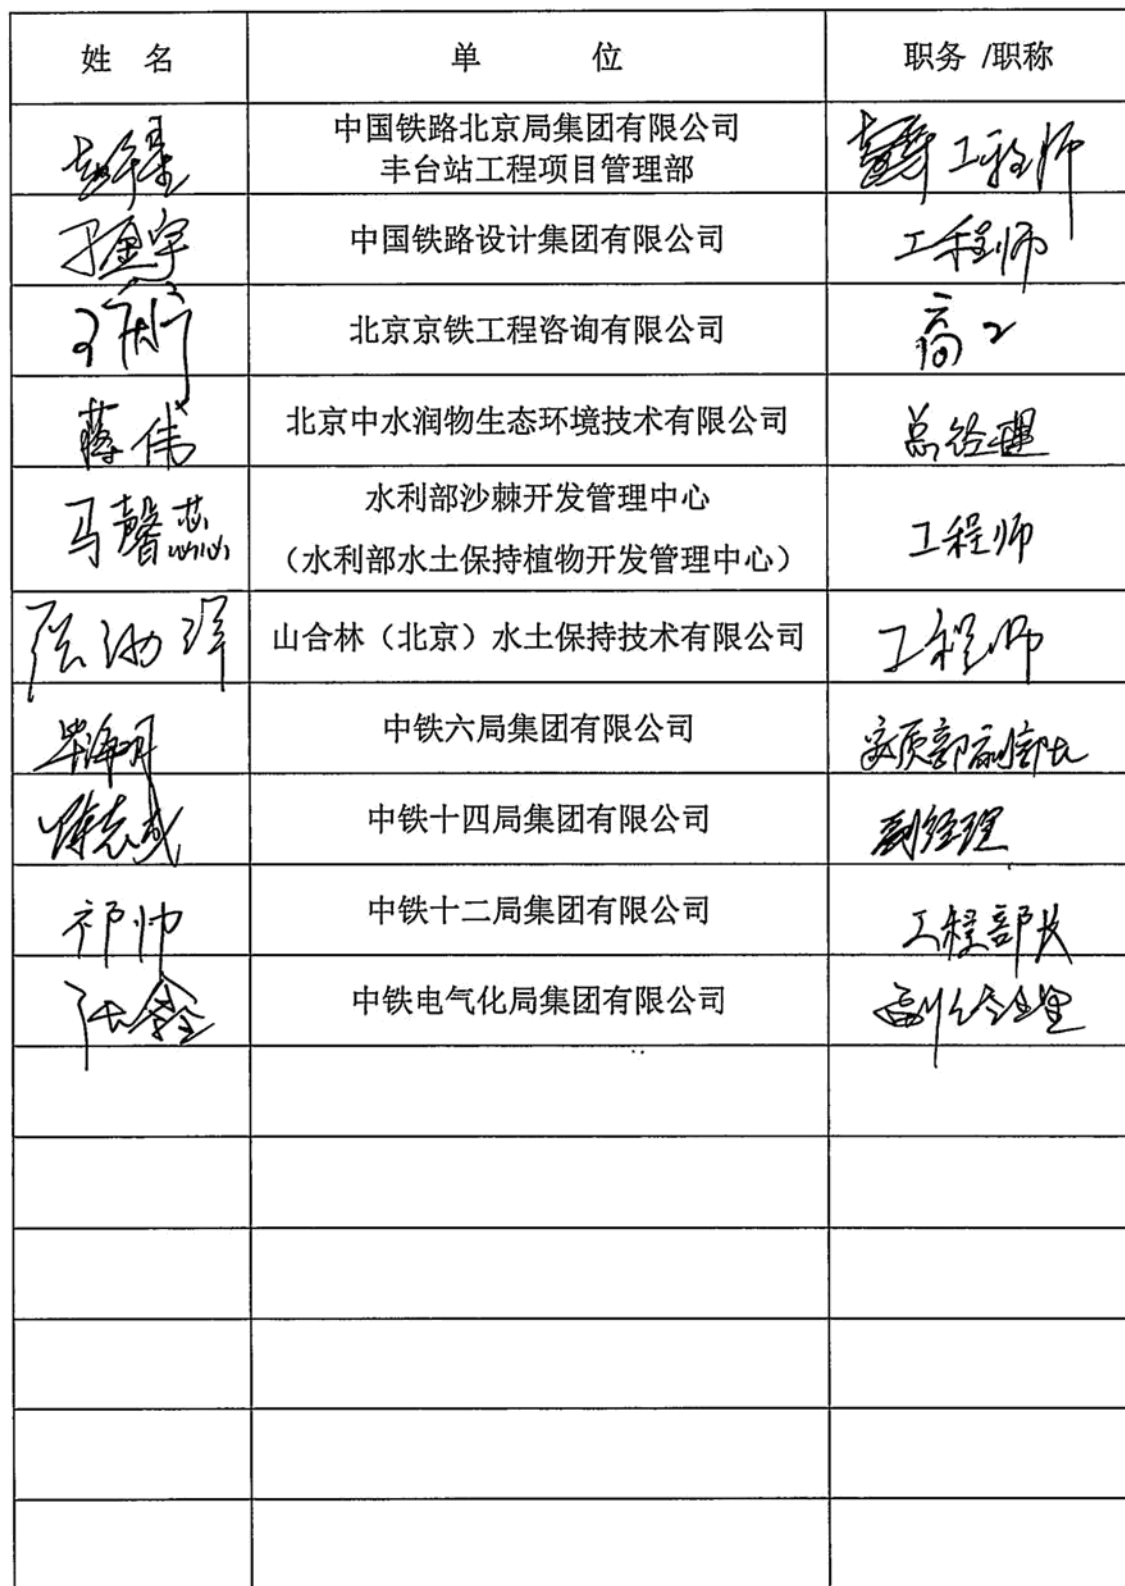 姓 名 单 位 职务 /职称
中国铁路北京局集团有限公司
丰台站工程项目管理部
工程师
中国铁路设计集团有限公司 工程师
北京京铁工程咨询有限公司 高工
蒋伟 北京中水润物生态环境技术有限公司 总经理
马馨蕊 水利部沙棘开发管理中心
(水利部水土保持植物开发管理中心) 工程师
山合林(北京)水土保持技术有限公司 工程师
中铁六局集团有限公司 安质部副部长
陈志斌 中铁十四局集团有限公司 副经理
祁帅 中铁十二局集团有限公司 工程部长
张鑫 中铁电气化局集团有限公司 副经理